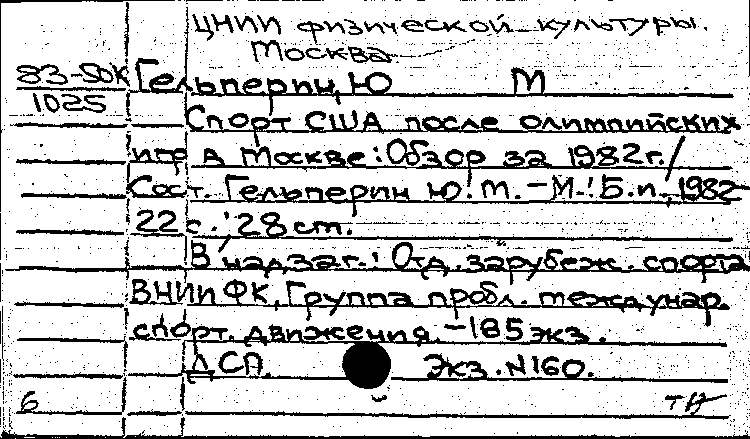 ЦНИИ физической культуры.
Москва
83-50К Гельперин, Ю М
1025
Спорт США после олимпийских
игр в Москве: Обзор за 1982 г. /
Сост. Гельперин Ю. М. - М.: Б.и., 1982-
22 с.; 28 см.
В надзаг.: Отд. зарубеж. спорта
ВНИИФК, Группа пробл. междунар.
спорт. движения. - 185 экз.
ДСП. Экз. N 160.
6